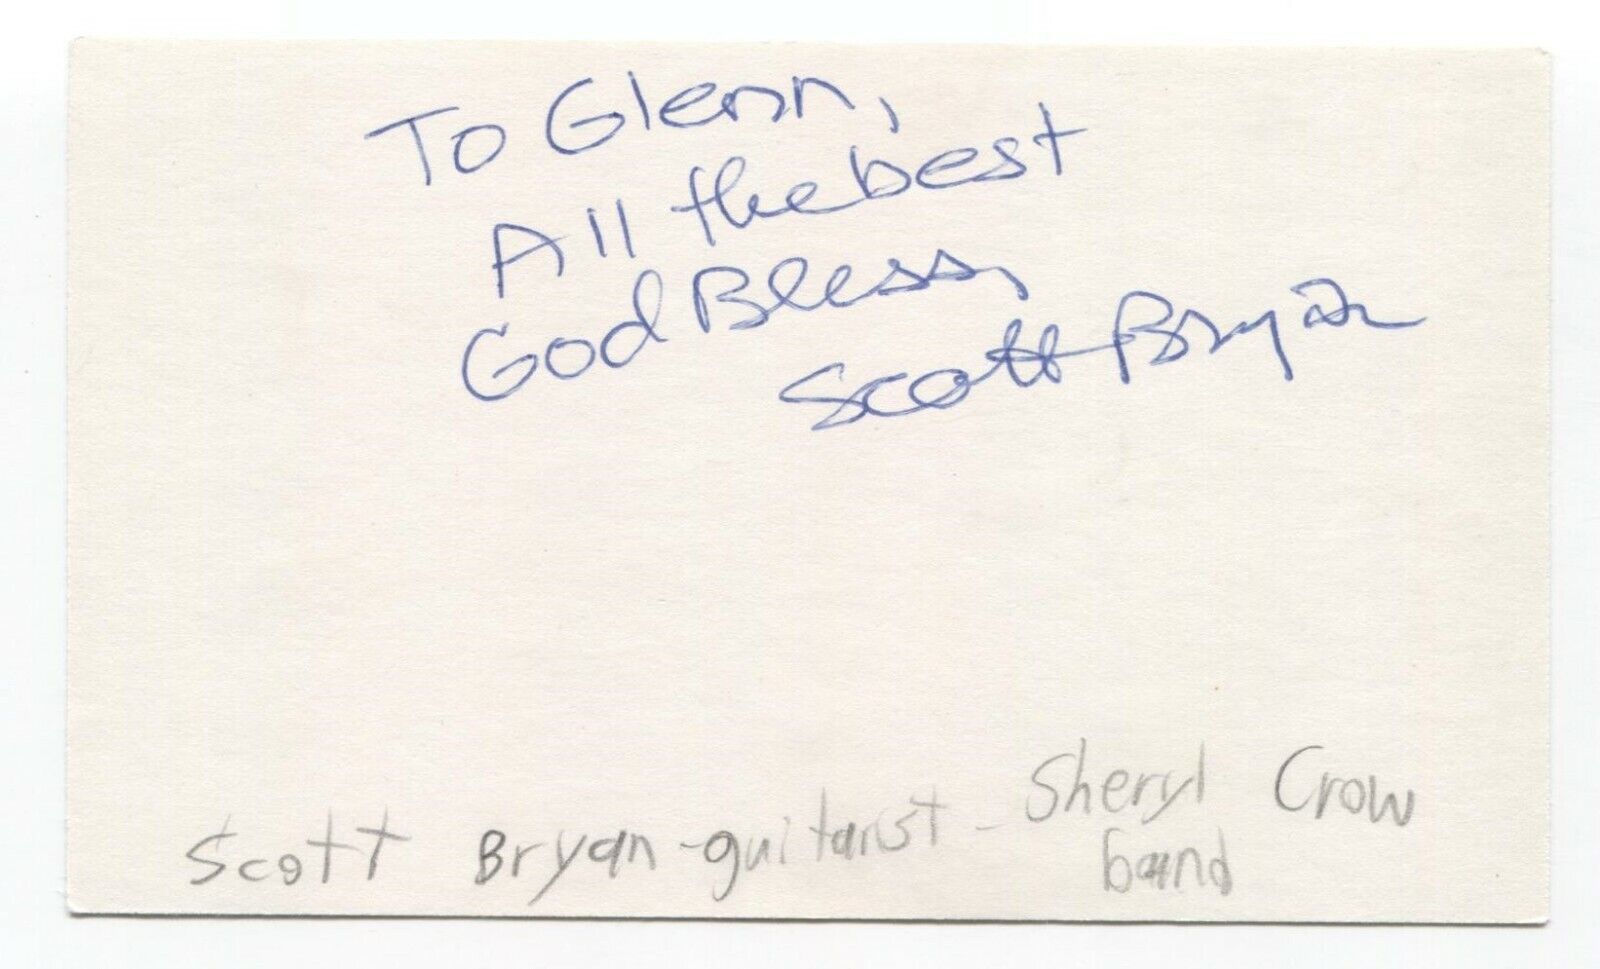 To Glenn,
All the best
God Bless,
Scott Bryan
Scott Bryan - guitarist - Sheryl Crow
band